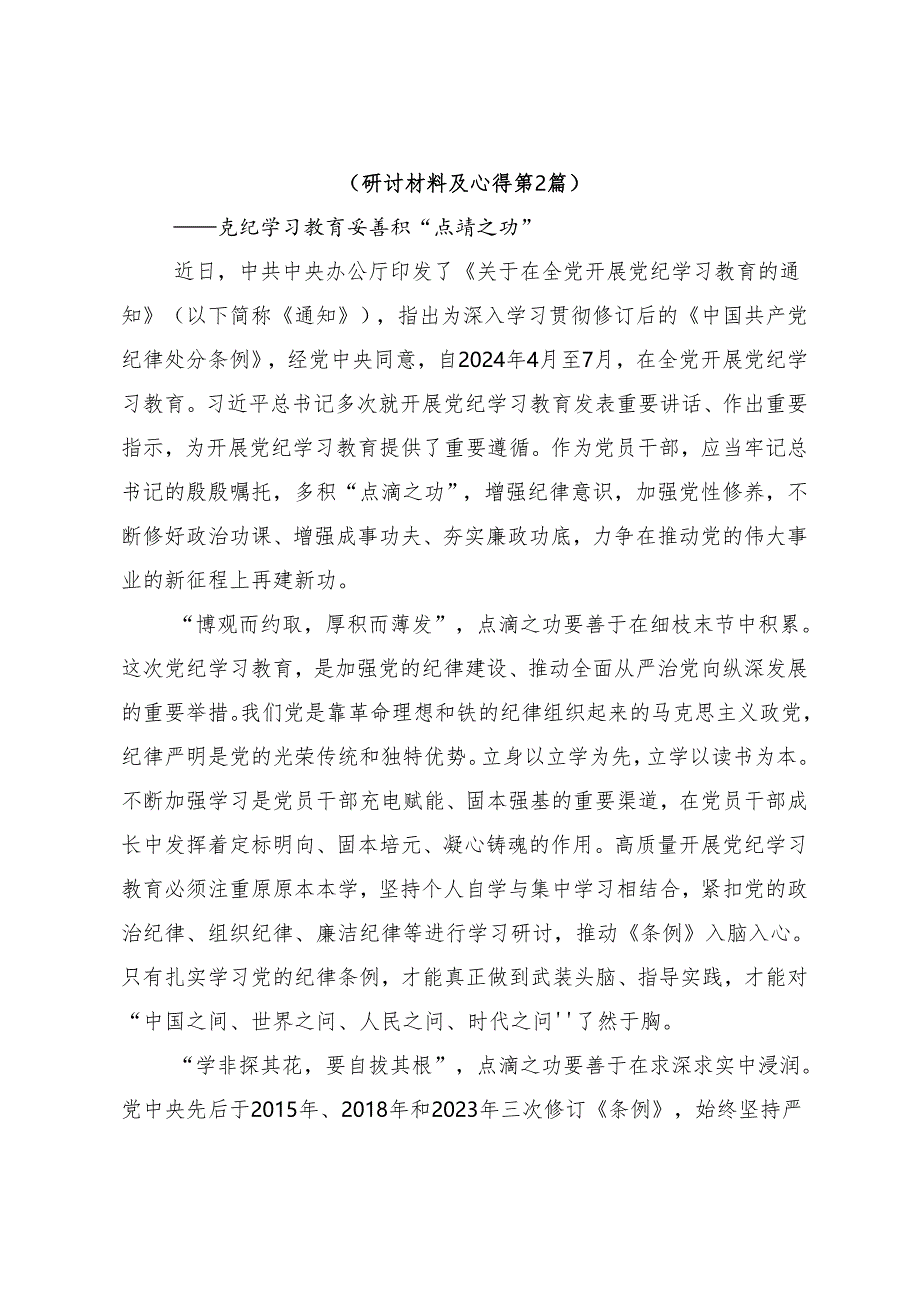 （研讨材料及心得第2篇）
——克纪学习教育妥善积“点靖之功”
近日，中共中央办公厅印发了《关于在全党开展党纪学习教育的通
知》（以下简称《通知》），指出为深入学习贯彻修订后的《中国共产党
纪律处分条例》，经党中央同意，自2024年4月至7月，在全党开展党纪学
习教育。习近平总书记多次就开展党纪学习教育发表重要讲话、作出重要
指示，为开展党纪学习教育提供了重要遵循。作为党员干部，应当牢记总
书记的殷殷嘱托，多积“点滴之功”，增强纪律意识，加强党性修养，不
断修好政治功课、增强成事功夫、夯实廉政功底，力争在推动党的伟大事
业的新征程上再建新功。
“博观而约取，厚积而薄发”，点滴之功要善于在细枝末节中积累。
这次党纪学习教育，是加强党的纪律建设、推动全面从严治党向纵深发展
的重要举措。我们党是靠革命理想和铁的纪律组织起来的马克思主义政党，
纪律严明是党的光荣传统和独特优势。立身以立学为先，立学以读书为本。
不断加强学习是党员干部充电赋能、固本强基的重要渠道，在党员干部成
长中发挥着定标明向、固本培元、凝心铸魂的作用。高质量开展党纪学习
教育必须注重原原本本学，坚持个人自学与集中学习相结合，紧扣党的政
治纪律、组织纪律、廉洁纪律等进行学习研讨，推动《条例》入脑入心。
只有扎实学习党的纪律条例，才能真正做到武装头脑、指导实践，才能对
“中国之间、世界之问、人民之问、时代之问''了然于胸。
“学非探其花，要自拔其根”，点滴之功要善于在求深求实中浸润。
党中央先后于2015年、2018年和2023年三次修订《条例》，始终坚持严